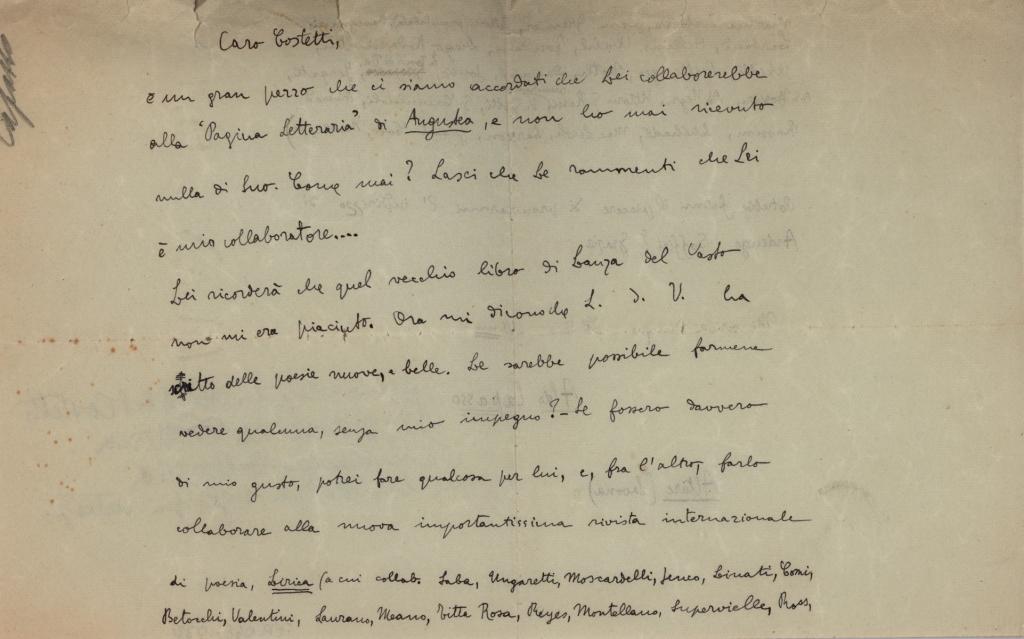 Capasso
Caro Costetti,
è un gran pezzo che ci siamo accordati che Lei collaborerebbe
alla "Pagina Letteraria" di Augustea, e non ho mai ricevuto
nulla di Suo. Come mai? Lasci che Le rammenti che Lei
è mio collaboratore....
Lei ricorderà che quel vecchio libro di Lanza del Vasto
non mi era piaciuto. Ora mi dicono che L. D. V. ha
scritto delle poesie nuove, e belle. Le sarebbe possibile farmene
vedere qualcuna, senza mio impegno? - Se fossero davvero
di mio gusto, potrei fare qualcosa per lui, e, fra l'altro, farlo
collaborare alla nuova importantissima rivista internazionale
di poesia, Lirica (a cui collab. Saba, Ungaretti, Moscardelli, Linati, Comi,
Betocchi, Valentini, Laurano, Meano, Titta Rosa, Reyes, Montellano, Supervielle,